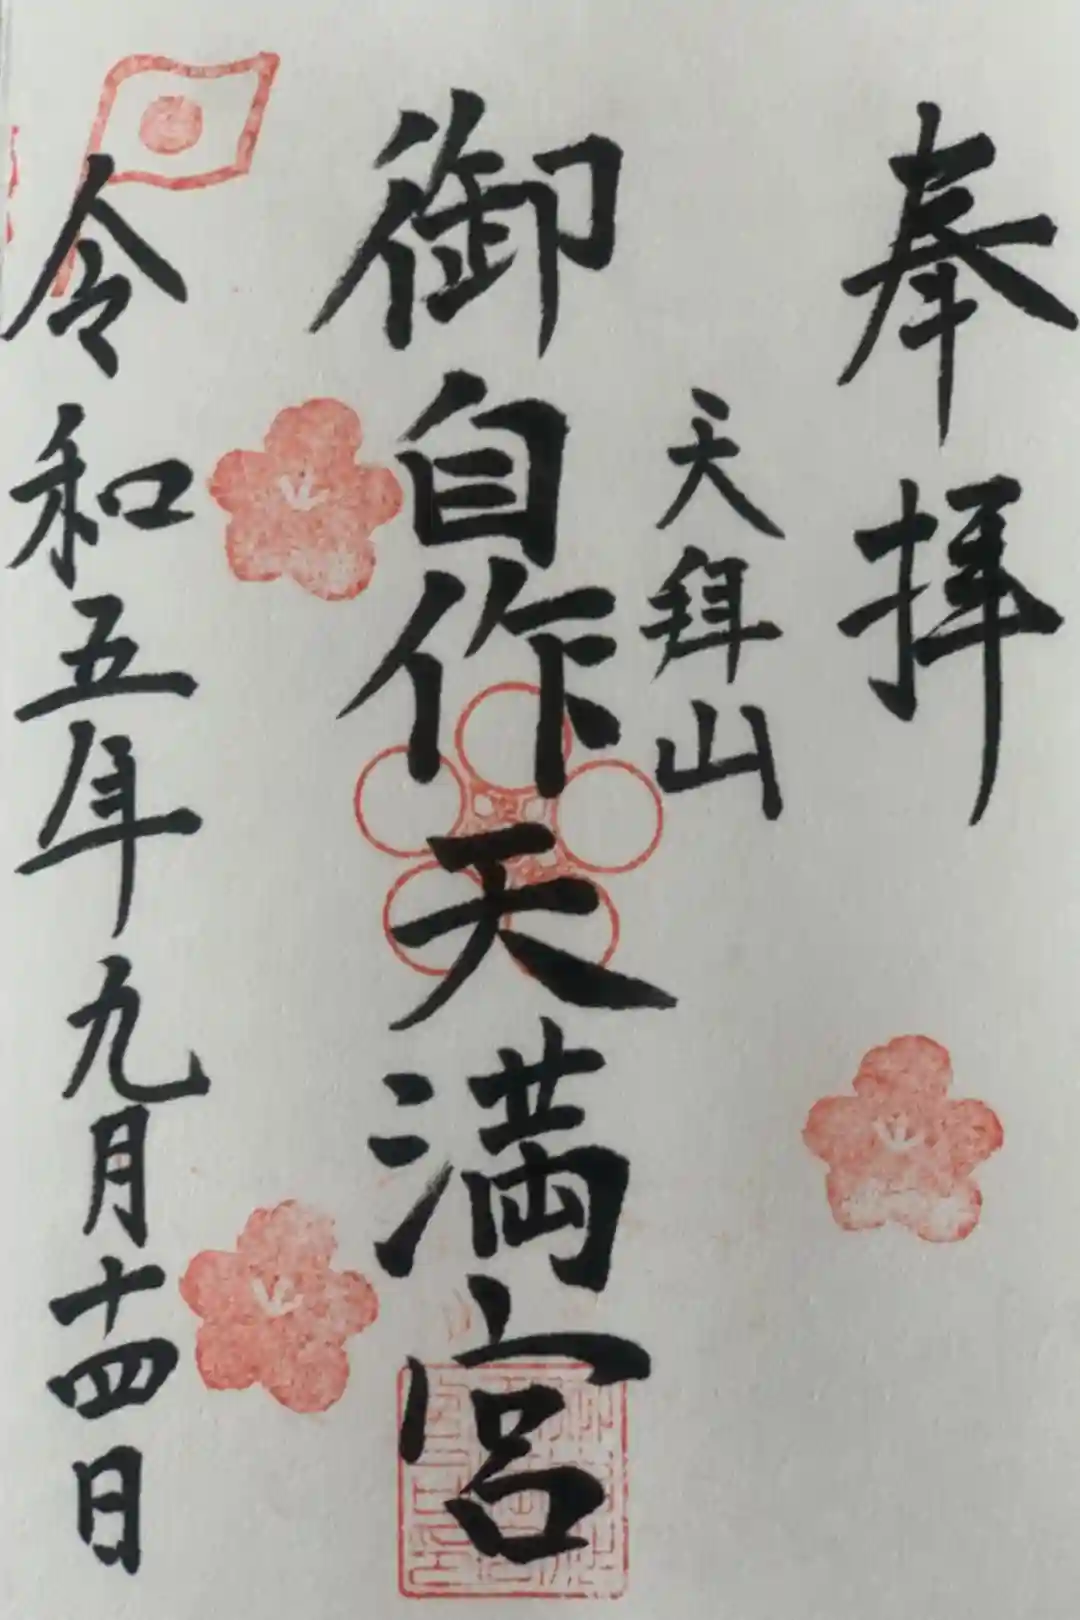 奉拝
天拝山
御自作天満宮
令和五年九月十四日